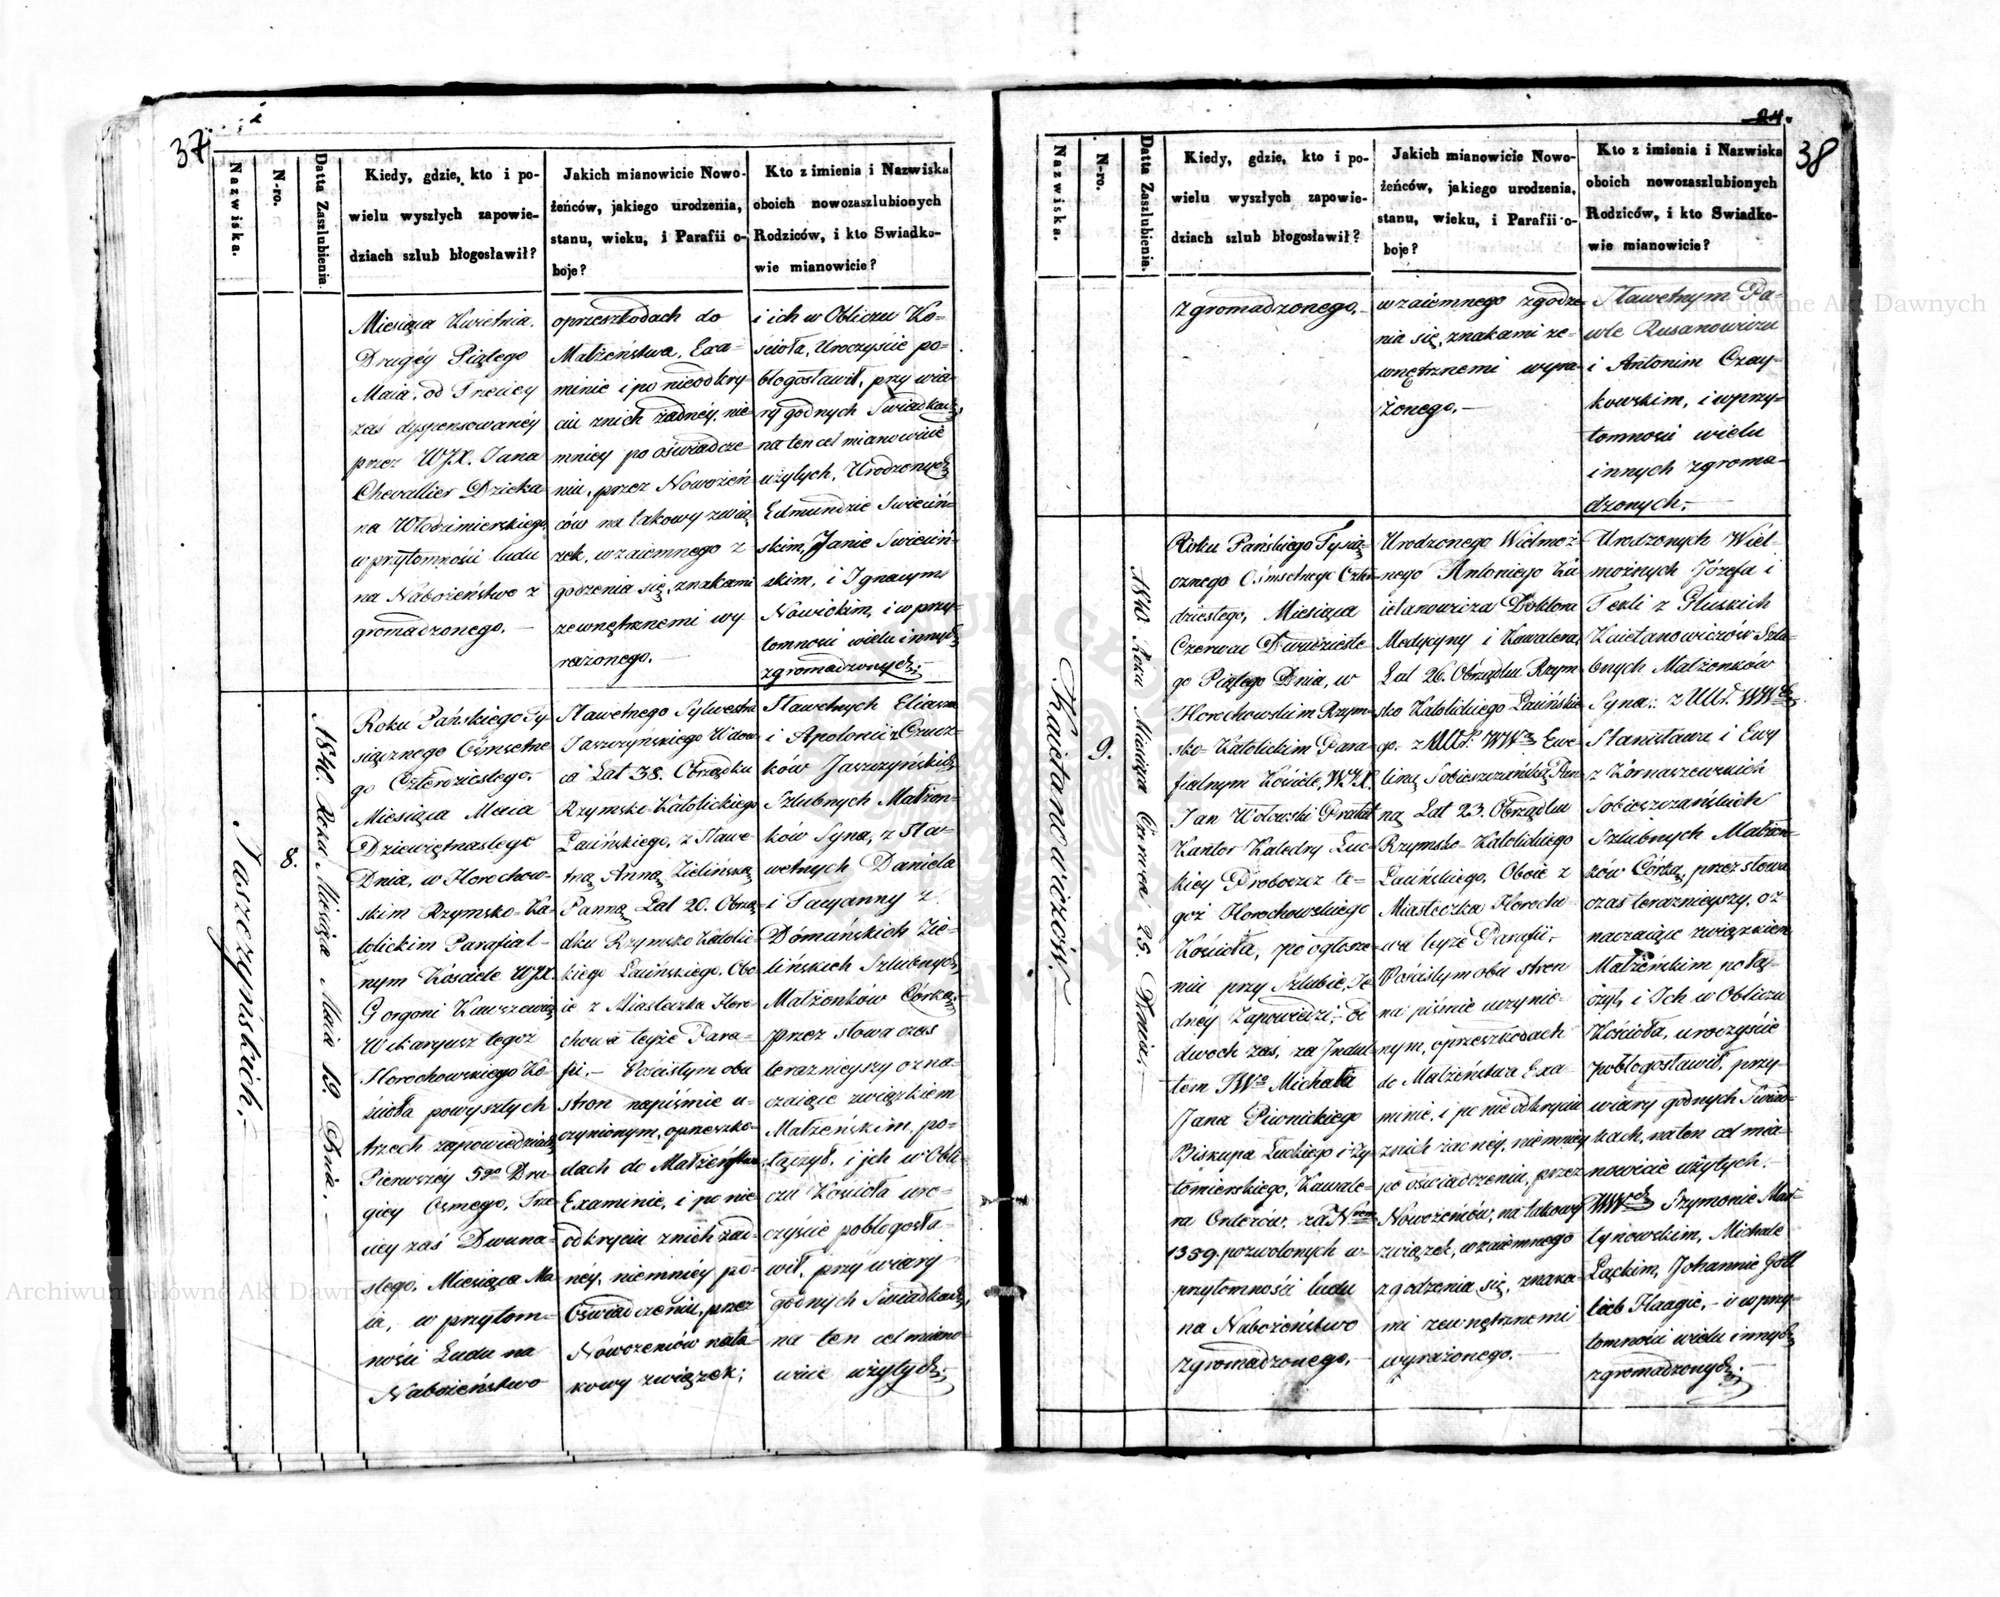 37
Nazwiska.
N-ro.
Datta Zaszlubienia.
Kiedy, gdzie, kto i po-
wielu wyszłych zapowie-
dziach szlub błogosławił?
Jakich mianowicie Nowo-
żeńców, jakiego urodzenia,
stanu, wieku, i Parafii o-
boje?
Kto z imienia i Nazwiska
oboich nowozaszlubionych
Rodziców, i kto Swiadko-
wie mianowicie?
Miesiąca Kwietnia.
Drugéy Piątego
Maia, od Trzeciey
zaś dyspensowanéy
przez WJX. Jana
Chevallier Dzieka-
na Włodzimierskiego,
w przytomności ludu
na Nabożeństwo z
gromadzonego.—
oprzeszkodach do
Małżeństwa, Exa-
minie i po nieodkry-
ciu znich żadney, nie-
mniey po oświadcze-
niu, przez Nowożeń-
ców na takowy zwią-
zek, wzaiemnego z
godzenia się, znakami
zewnętrznemi wy
rażonego.—
i ich w Obliczu Ko-
ścioła, Uroczyście po-
błogosławił, przy wia-
ry godnych Swiadkach,
na ten cel mianowicie
użytych, Urodzonych
Edmundzie Swieciń-
skim, Janie Swieciń-
skim, i Ignacym
Nowickim, i w przy-
tomności wielu innych
zgromadzonych.—
Jaszczyńskich.—
8.
1840. Roku Miesiąca Maia 19. Dnia.—
Roku Pańskiego Ty-
siącznego Ośmsetne
go Czterdziestego,
Miesiąca Maia
Dziewiętnastego
Dnia, w Horochow-
skim Rzymsko-Ka-
tolickim Parafial-
nym Kościele WJX.
Gorgoni
Wikaryusz tegoż
Horochowskiego Ko-
ścioła powyszłych
trzech zapowiedziach,
Pierwszéy 5go Dru-
giey Osmego, Trze
ciey zaś Dwuna-
stego, Miesiąca Ma
ia, w przytom-
ności Ludu na
Nabożeństwo
Sławetnego Sylwestra
Jaszczyńskiego Wdow-
ca Lat 38. Obrządku
Rzymsko-Katolickiego
Łacińskiego, z Sławe
tną Anną Zielińską
Panną Lat 20. Obrzą-
dku Rzymsko Katolic-
kiego Łacińskiego. Obo
ie z Miasteczka Horo-
chowa teyże Para-
fii.— Pościsłym obu
stron napiśmie u-
czynionym, oprzeszko-
dach do Małżeństwa
Examinie, i po nie
odkryciu znich żad-
néy, niemniéy po-
Oświadczeniu, przez
Nowożeńców nata-
kowy związek;
Sławetnych Eliasza
i Apolonii z
ków Jaszczyńskich
Szlubnych Małżon-
ków Syna, z Sła-
wetnych Daniela
i Tacyanny z
Domańskich Zie-
lińskich Szlubnych
Małżonków Córką,
przez słowa czas
teraznieyszy ozna-
czaiące związkiem
Małżeńskim, po-
łączył, i jch w Obli-
czu Kościoła uro-
czyście pobłogosła-
wił, przy wiary
godnych Swiadkach,
na ten cel miano-
wicie użytych.—
24.
38
Nazwiska.
N-ro.
Datta Zaszlubienia.
Kiedy, gdzie, kto i po-
wielu wyszłych zapowie-
dziach szlub błogosławił?
Jakich mianowicie Nowo-
żeńców, jakiego urodzenia,
stanu, wieku, i Parafii o-
boje?
Kto z imienia i Nazwiska
oboich nowozaszlubionych
Rodziców, i kto Swiadko-
wie mianowicie?
Zgromadzonego.—
wzaiemnego zgodze-
nia się, znakami ze-
wnętrznemi wyra-
żonego.—
Sławetnym Pa-
wle Rusanowiczu
i Antonim Czay-
kowskim, i w przy-
tomności wielu
innych zgroma-
dzonych.—
Kaietanowiczów.—
9.
1840 Roku Miesiąca Czerwca 25. Dnia.—
Roku Pańskiego Tysią-
cznego Ośmsetnego Czter-
dziestego, Miesiąca
Czerwca Dwudzieste
go Piątego Dnia, w
Horochowskim Rzym-
sko-Katolickim Para-
fialnym Kościele, WJX.
Jan Wołowski Prałat
Kantor Katedry Łuc-
kiey Proboszcz te-
goż Horochowskiego
Kościoła, po ogłosze-
niu przy Szlubie, Je-
dney Zapowiedzi, od
dwoch zaś, za Indul-
tem JWo Michała
Jana Piwnickiego
Biskupa Łuckiego i Ży-
tomierskiego, Kawale-
ra Orderów, za Nrem
1339. pozwolonych w-
przytomności ludu
na Nabożeństwo
Zgromadzonego.—
Urodzonego Wielmoż-
nego Antoniego Ka
ietanowicza Doktora
Medycyny i Kawalera,
Lat 26. Obrządku Rzym-
sko Katolickiego Łacińskie-
go. z Ur. WWą Ewe-
liną Sobieszczańską Pan-
ną Lat 23. Obrządku
Rzymsko-Katolickiego
Łacińskiego, Oboie z
Miasteczka Horocho-
wa teyże Parafii.—
Pościsłym obu stron
na piśmie uczynio-
nym, oprzeszkodach
do Małżeństwa Exa-
minie, i po nie odkryciu
znich żadnéy, niemniéy
po oświadczeniu, przez
Nowożeńców, na takowy
związek, wzaiemnego
zgodzenia się, znaka-
mi zewnętrznemi
wyrażonego.—
Urodzonych Wiel-
możnych Józefa i
Tekli z Głuskich
Kaietanowiczów Szlu-
bnych Małżonków
Syna: z Ur. WWch
Stanisława i Ewy
z Kornaszewskich
Sobieszczańskich
Szlubnych Małżon-
ków Córką, przez słowa
czas teraznieyszy, oz
naczaiące związkiem
Małżeńskim połą-
czył, i Ich w Obliczu
Kościoła, uroczyście
pobłogosławił, przy-
wiary godnych Swiad-
kach, na ten cel mia-
nowicie użytych.—
WWch Szymonie Mar-
tynowskim, Michale
Łąckim, Johannie Gott
lieb Haagie,— i w przy-
tomności wielu innych
zgromadzonych.—
Archiwum Główne Akt Dawnych
Archiwum Główne Akt Dawnych